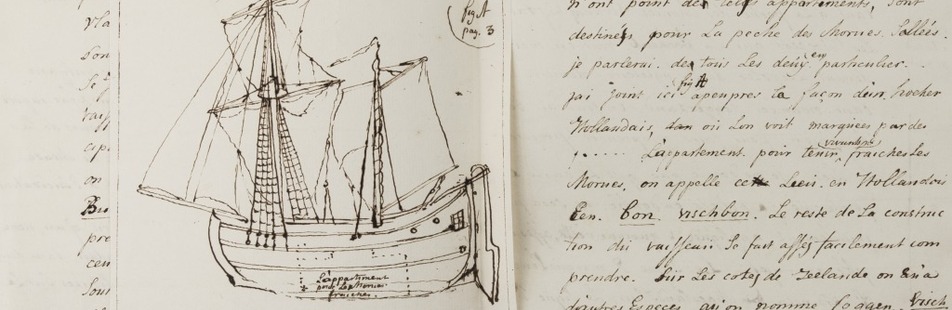 vla
son
on
pre
cen
sous
fig A
pag. 3
L'appartement
pour Les Morues
fraiches.
n'ont point des appartements, sont
destinés pour La peche des Morues Sallées.
je parlerai des tous Les deux en particulier.
jai joint ici fig A apeupres la façon d'un hoeker
Hollandais, ou Lon voit marquées par des
..... Lappartement pour tenir vivantes fraiches Les
Morues, on appelle cela en Hollandois
Een bon vischbon. Le reste de La construc
tion du vaisseau Se fait assez facilement com
prendre. Sur Les cotes de Zeelande on en a
dautres Especes qu'on nomme hoggen, visch